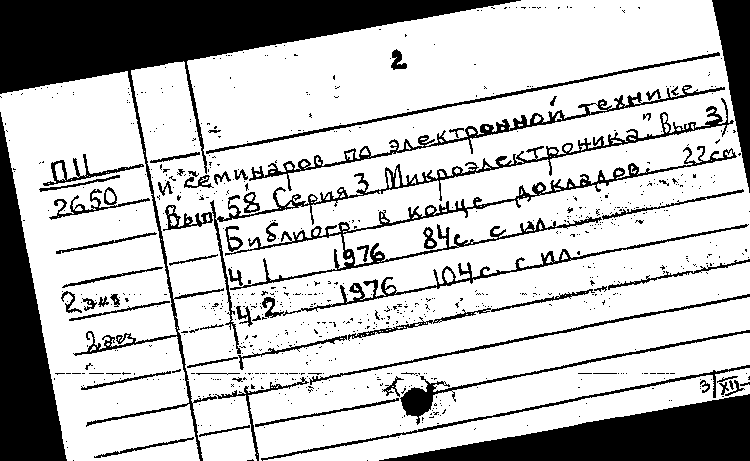 2
ПII
2650
и семинаров по электронной технике
Вып. 58 Серия 3 Микроэлектроника". Вып 3)
Библиогр. в конце докладов. 22см.
Ч. 1. 1976 84с. с ил.
Ч. 2 1976 104с. с ил.
2 экз.
2 экз
3/XII